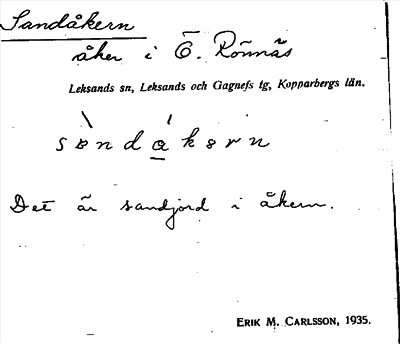 Sandåkern
åker i Ö. Rönnäs
Leksands sn, Leksands och Gagnefs tg, Kopparbergs län.
Det är sandjord i åkern.
ERIK M. CARLSSON, 1935.